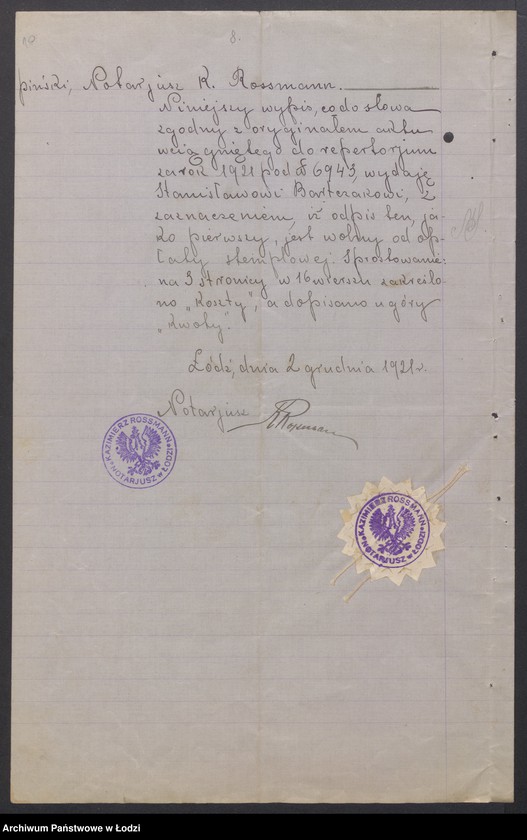 10
8.
piński, Notarjusz K. Rossmann.
Niniejszy wypis, co do słowa
zgodny z oryginałem aktu
wciągniętego do repertorjum
za rok 1921 pod № 6943, wydaję
Stanisławowi Bartczakowi, z
zaznaczeniem, iż odpis ten, ja-
ko pierwszy, jest wolny od op-
łaty stemplowej. Sprostowanie:
na 3 stronicy w 16 wierszu zakreślo-
no „Koszty", a dopisano u góry
„Kwoty".
Łódź, dnia 2 grudnia 1921 r.
Notarjusz KRossmann
KAZIMIERZ ROSSMANN
NOTARJUSZ w ŁODZI
KAZIMIERZ ROSSMANN
NOTARJUSZ w ŁODZI
Archiwum Państwowe w Łodzi